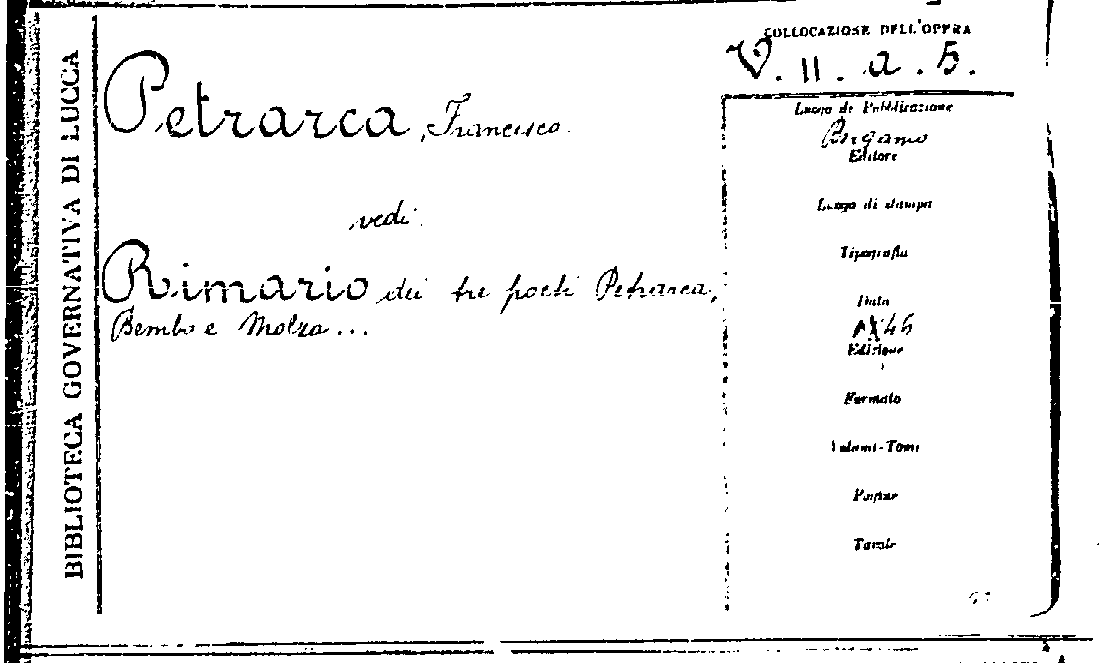 BIBLIOTECA GOVERNATIVA DI LUCCA
Petrarca, Francesco.
vedi
Rimario dei tre poeti Petrarca,
Bembo e Molza...
COLLOCAZIONE DELL'OPERA
V. II. a. 5.
Luogo di Pubblicazione
Bergamo
Editore
Luogo di stampa
Tipografia
Data
Edizione
Formato
Volumi-Tomi
Pagine
Tavole